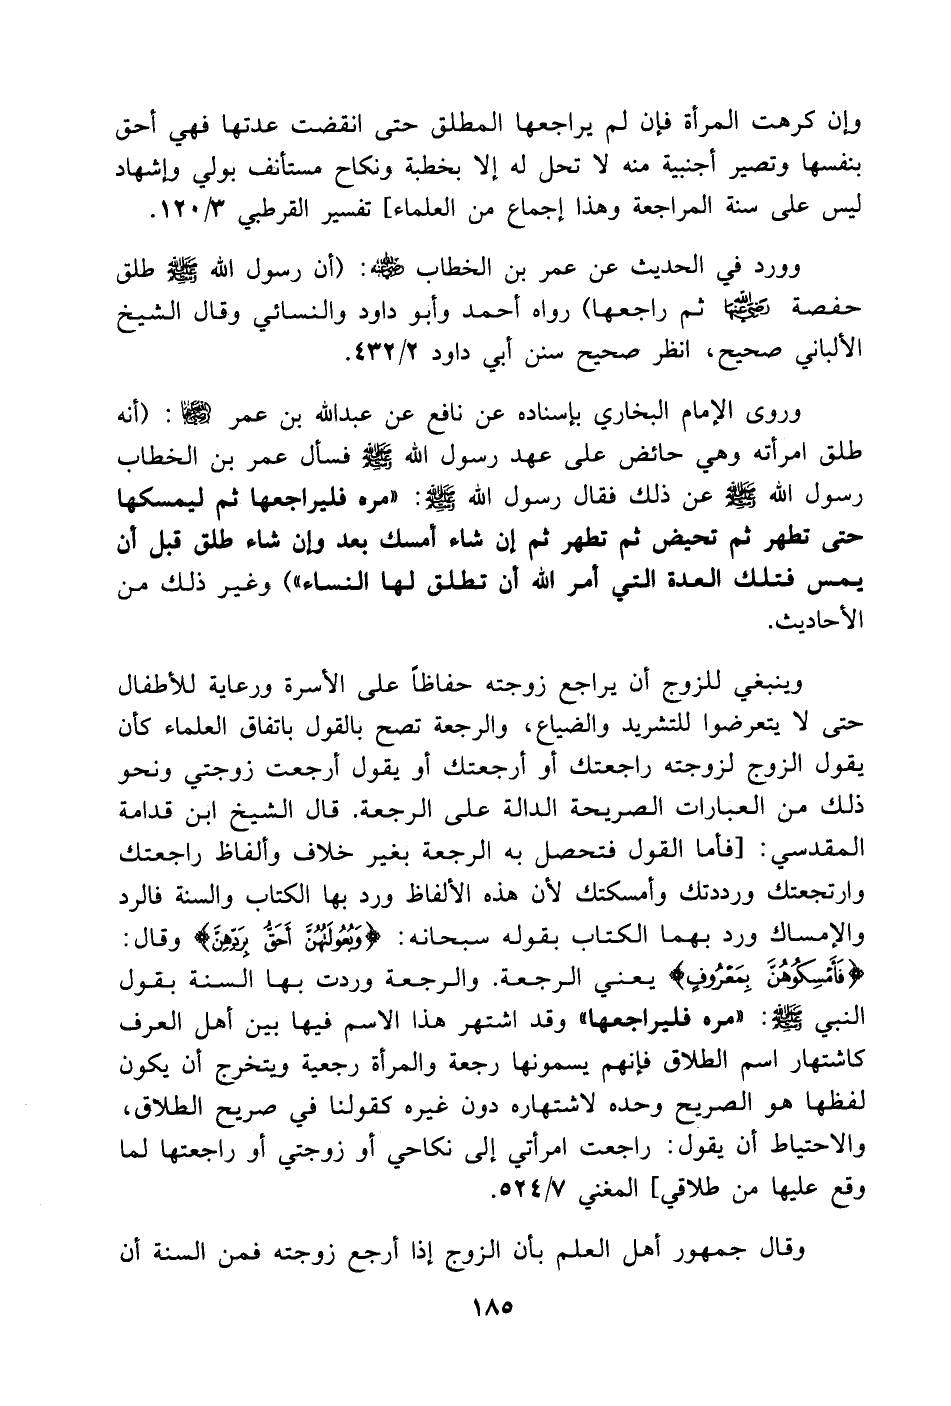 وإن كرهت المرأة فإن لم يراجعها المطلق حتى انقضت عدتها فهي أحق
بنفسها وتصير أجنبية منه لا تحل له إلا بخطبة ونكاح مستأنف بولي وإشهاد
ليس على سنة المراجعة وهذا إجماع من العلماء] تفسير القرطبي ١٢٠/٣.
وورد في الحديث عن عمر بن الخطاب رضي الله عنه: (أن رسول الله ﷺ طلق
حفصة رضي الله عنها ثم راجعها) رواه أحمد وأبو داود والنسائي وقال الشيخ
الألباني صحيح، انظر صحيح سنن أبي داود ٤٣٢/٢.
وروى الإمام البخاري بإسناده عن نافع عن عبدالله بن عمر رضي الله عنهما: (أنه
طلق امرأته وهي حائض على عهد رسول الله ﷺ فسأل عمر بن الخطاب
رسول الله ﷺ عن ذلك فقال رسول الله ﷺ: «مره فليراجعها ثم ليمسكها
حتى تطهر ثم تحيض ثم تطهر ثم إن شاء أمسك بعد وإن شاء طلق قبل أن
يمس فتلك العدة التي أمر الله أن تطلق لها النساء») وغير ذلك من
الأحاديث.
وينبغي للزوج أن يراجع زوجته حفاظاً على الأسرة ورعاية للأطفال
حتى لا يتعرضوا للتشريد والضياع، والرجعة تصح بالقول باتفاق العلماء كأن
يقول الزوج لزوجته راجعتك أو أرجعتك أو يقول أرجعت زوجتي ونحو
ذلك من العبارات الصريحة الدالة على الرجعة. قال الشيخ ابن قدامة
المقدسي: [فأما القول فتحصل به الرجعة بغير خلاف وألفاظ راجعتك
وارتجعتك ورددتك وأمسكتك لأن هذه الألفاظ ورد بها الكتاب والسنة فالرد
والإمساك ورد بهما الكتاب بقوله سبحانه: ﴿وَبُعُولَتُهُنَّ أَحَقُّ بِرَدِّهِنَّ﴾ وقال:
﴿فَأَمْسِكُوهُنَّ بِمَعْرُوفٍ﴾ يعني الرجعة. والرجعة وردت بها السنة بقول
النبي ﷺ: «مره فليراجعها» وقد اشتهر هذا الاسم فيها بين أهل العرف
كاشتهار اسم الطلاق فإنهم يسمونها رجعة والمرأة رجعية ويتخرج أن يكون
لفظها هو الصريح وحده لاشتهاره دون غيره كقولنا في صريح الطلاق،
والاحتياط أن يقول: راجعت امرأتي إلى نكاحي أو زوجتي أو راجعتها لما
وقع عليها من طلاقي] المغني ٥٢٤/٧.
وقال جمهور أهل العلم بأن الزوج إذا أرجع زوجته فمن السنة أن
١٨٥